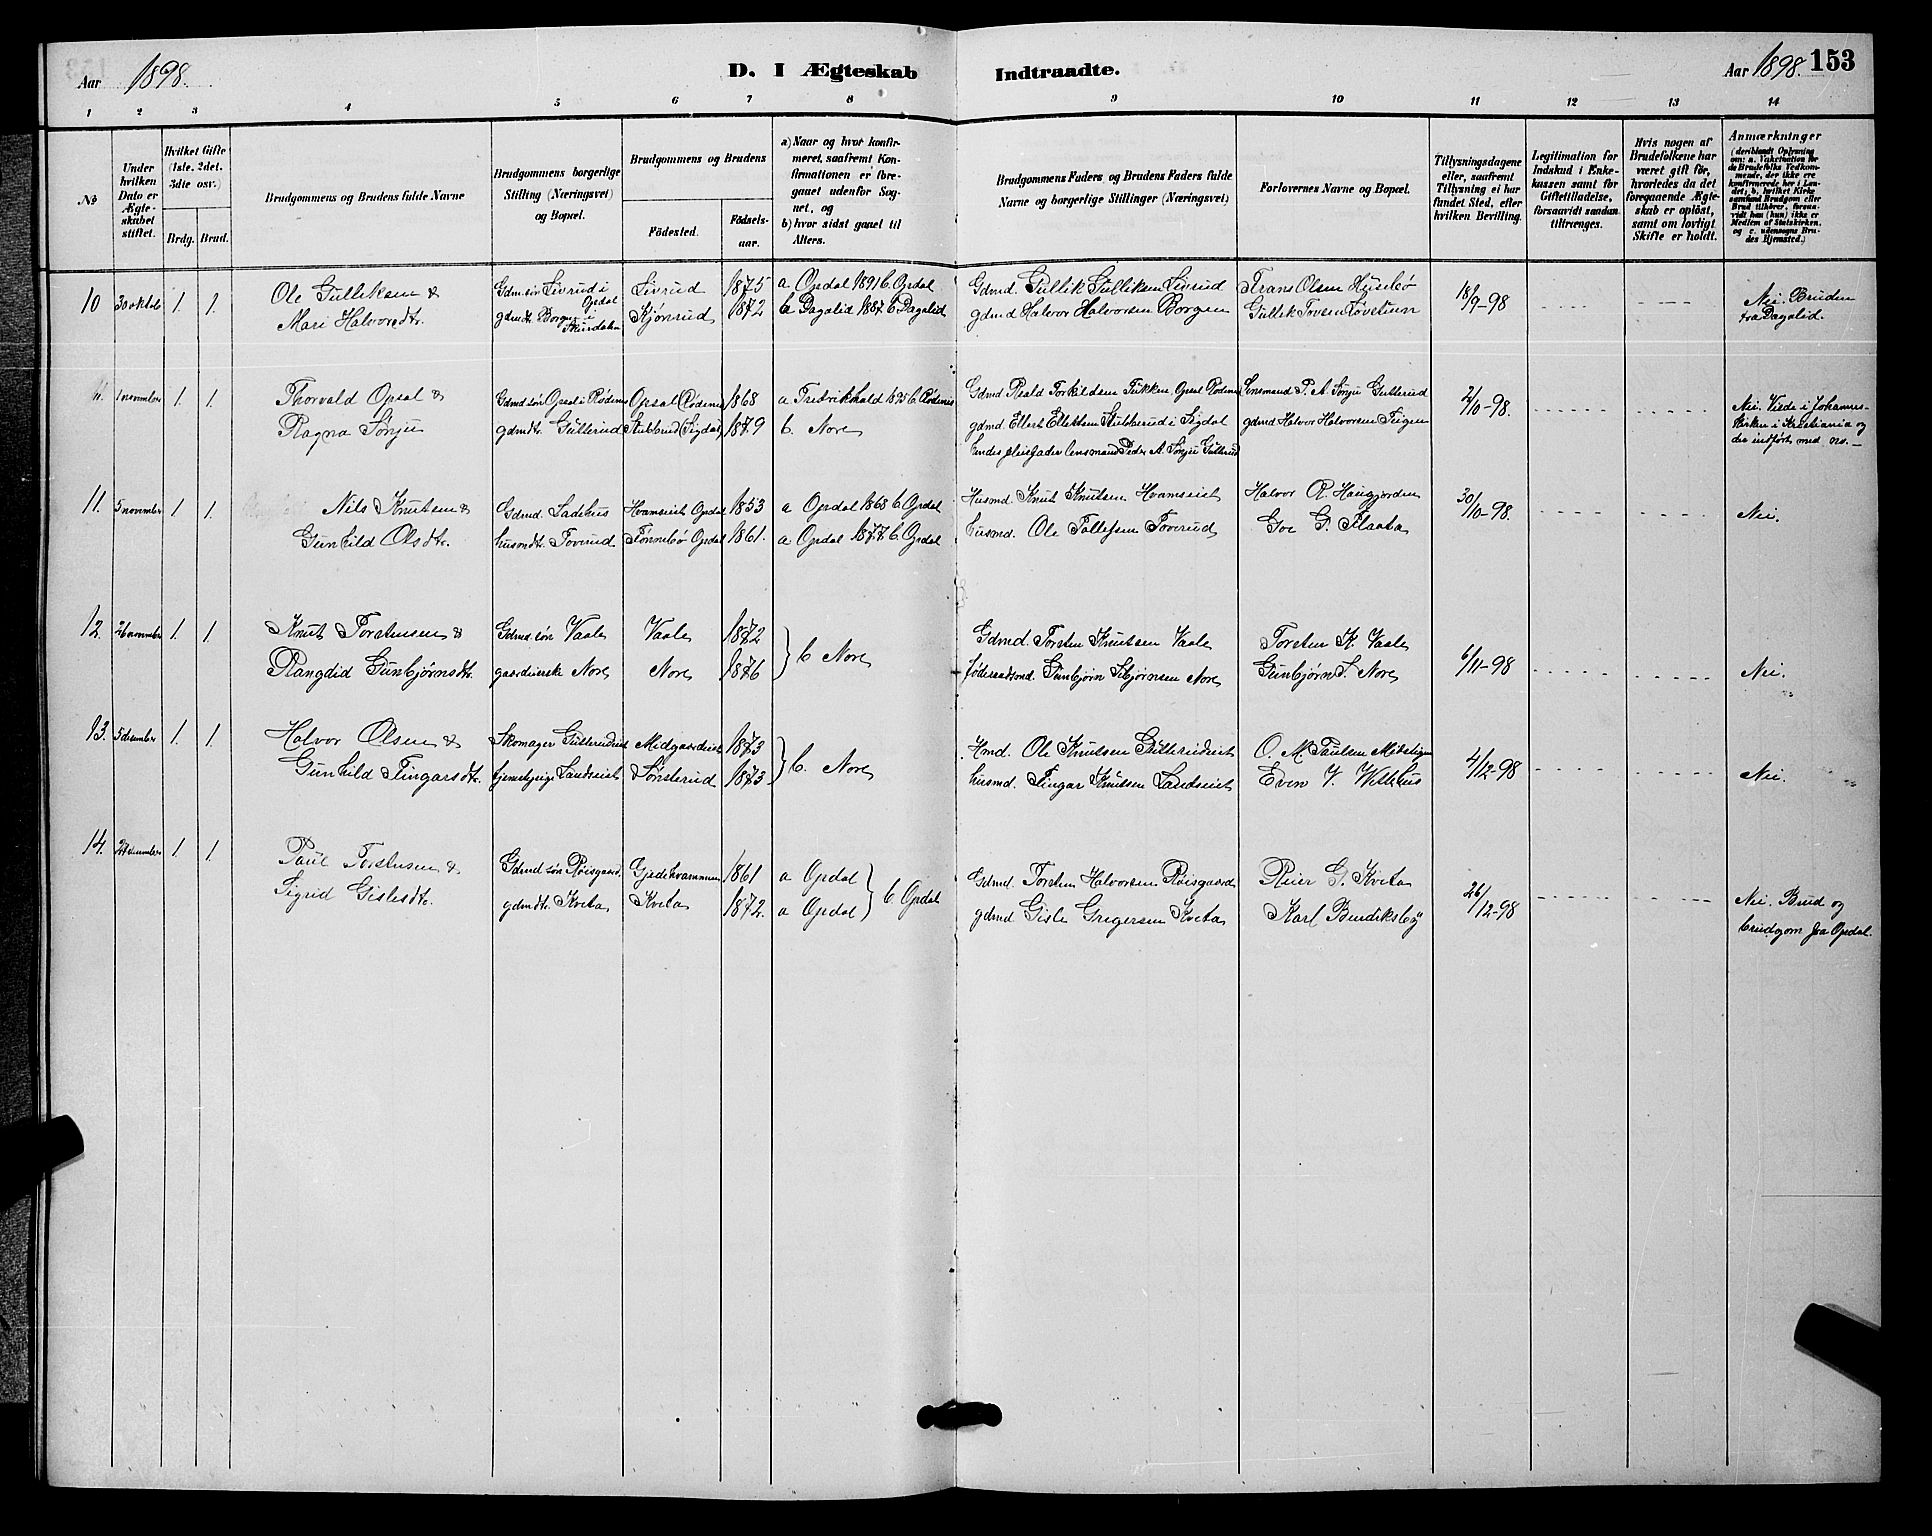 Aar 1898. D. I Ægteskab Indtraadte. Aar 1898. 153
1 2 3 4 5 6 7 8 9 10 11 12 13 14
№
Under hvilken Dato er Ægteskabet stiftet.
Hvilket Gifte (1ste, 2det, 3die osv.)
Brdg. Brud.
Brudgommens og Brudens fulde Navne
Brudgommens borgerlige Stilling (Næringsvei) og Bopæl.
Brudgommens og Brudens
Fødested. Fødselsaar.
a) Naar og hvor konfirmeret, saafremt Konfirmationen er foregaaet udenfor Sognet, og
b) hvor sidst gaaet til Alters.
Brudgommens Faders og Brudens Faders fulde Navne og borgerlige Stillinger (Næringsvei)
Forlovernes Navne og Bopæl.
Tillysningsdagene eller, saafremt Tillysning ei har fundet Sted, efter hvilken Bevilling.
Legitimation for Indskud i Enkekassen samt for Giftetilladelse, forsaavidt saadan tiltrænges.
Hvis nogen af Brudefolkene har været gift før, hvorledes da det foregaaende Ægteskab er opløst, samt om lovligt Skifte er holdt.
Anmærkninger (deriblandt Oplysning om: a. Vaksination for de Brudefolks Vedkommende, der ikke ere konfirmerede her i Landet; b. hvilket Kirkesamfund Brudgom eller Brud tilhører, forsaavidt han (hun) ikke er Medlem af Statskirken, og c. udensogns Brudes Hjemsted.)
10 30 oktob 1. 1. Ole Gulliksen & Gdm søn Livrud i Opdal Livrud 1875 a Opdal 1891 b. Opdal Gdmd. Gullik Gulliksen Livrud Frans Olsen Hysebø 18/9-98 Nei. Bruden
Mari Halvorsdtr. gdmdtr. Borgen i Skurdalen Kjønrud 1872 a Dagalid 1887 b Dagalid gdmd Halvor Halvorsen Borgen Gullik Tovsen Løvstuen fra Dagalid.
11. 1 november 1. 1. Thorvald Opsal & Gdmd søn Opsal i Rødenes Opsal (Rødenes) 1868 a Fredrikhald 1895 b. Rødenes Gdmd Torkildsen Opsal Rødenes Lensmand P. A. Sønju Gulterud 2/10-98. Nei. Viede i Johannes-
Ragna Sønju gdmdtr. Gulterud Stubberud (Sigdal) 1879 b. Nore gdmd. Ellert Ellertsen Stubberud i Sigdal gdmd Halvor Halvorsen Teigen kirken i Kristiania og
hendes pleiefader lensmand Peder A. Sønju Gulterud der indført med no. —
11. 5 november 1 1. Nils Knutsen & Gdmd. Ladehus Hvamseiet Opdal 1853 a Opdal 1868 b. Opdal Husmd. Knut Knutsen Hvamseiet Halvor R. Haugjorden 30/10-98. Nei.
Gunhild Olsdtr. husmdtr. Toverud Tønnebø Opdal 1861. a Opdal 1877 b. Opdal husmd. Ole Tollefsen Toverud Goe G. Flaata
12. 26 november 1. 1 Knut Torstensen & Gdmd søn Vaale Vaale 1872 b. Nore Gdmd. Torsten Knutsen Vaale Torsten K. Vaale 6/11-98 Nei.
Rangdid Gunbjørnsdtr. gaardeierske Nore Nore 1876 føderaadsmd. Gunbjørn Sebjørnsen Nore Gunbjørn S. Nore
13. 5 desember 1. 1. Halvor Olsen & Skomager Gulterudeiet Midgaardeiet 1873 b. Nore Hmd. Ole Knutsen Gulterudeiet O. M. Paulsen Midstigen 4/12-98 Nei.
Gunhild Fingarsdtr. tjenestepige Landseiet Sønsterud 1873. husmd. Fingar Knutsen Landseiet Even V. Vettehus
14. desember 1. 1. Paul Torstensen & Gdmd søn Røisgaard Gjedehvammen 1861 a Opdal b. Opdal Gdmd. Torsten Halvorsen Røisgaard Reier G. Kveta 26/12-98 Nei. Brud og
Sigrid Gislesdtr. gdmdtr. Kveta Kveta 1872. a Opdal gdmd Gisle Gregersen Kveta Karl Bendiksby brudgom fra Opdal.